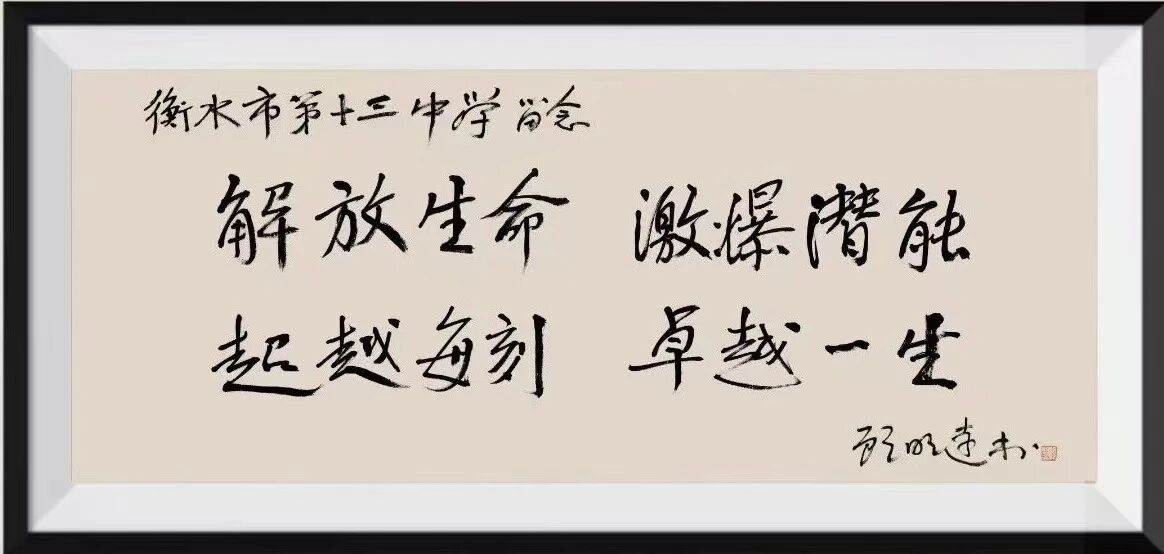 衡水市第十三中学留念
解放生命 激爆潜能
超越每刻 卓越一生
顾明远书